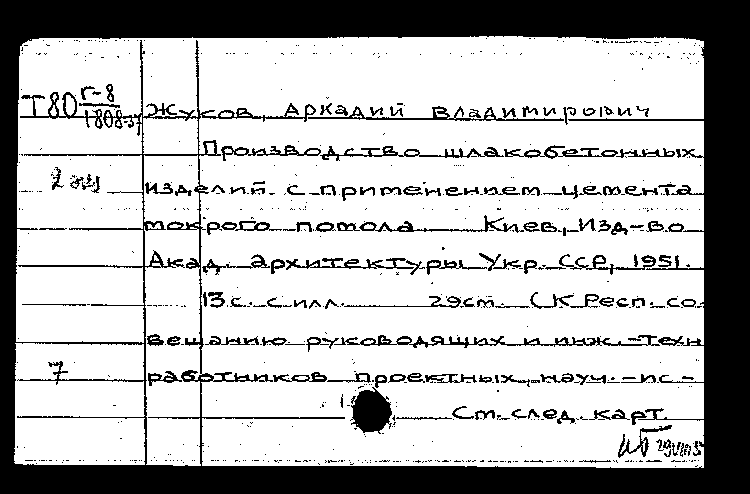 Т80 г-8 Жуков, Аркадий Владимирович
1808-57
Производство шлакобетонных
2 экз изделий с применением цемента
мокрого помола. Киев, Изд-во
Акад. архитектуры Укр. ССР, 1951.
13 с. с илл. 29см. (К Респ. со-
вещанию руководящих и инж.-техн
7 работников проектных, науч.-ис-
См. след. карт.